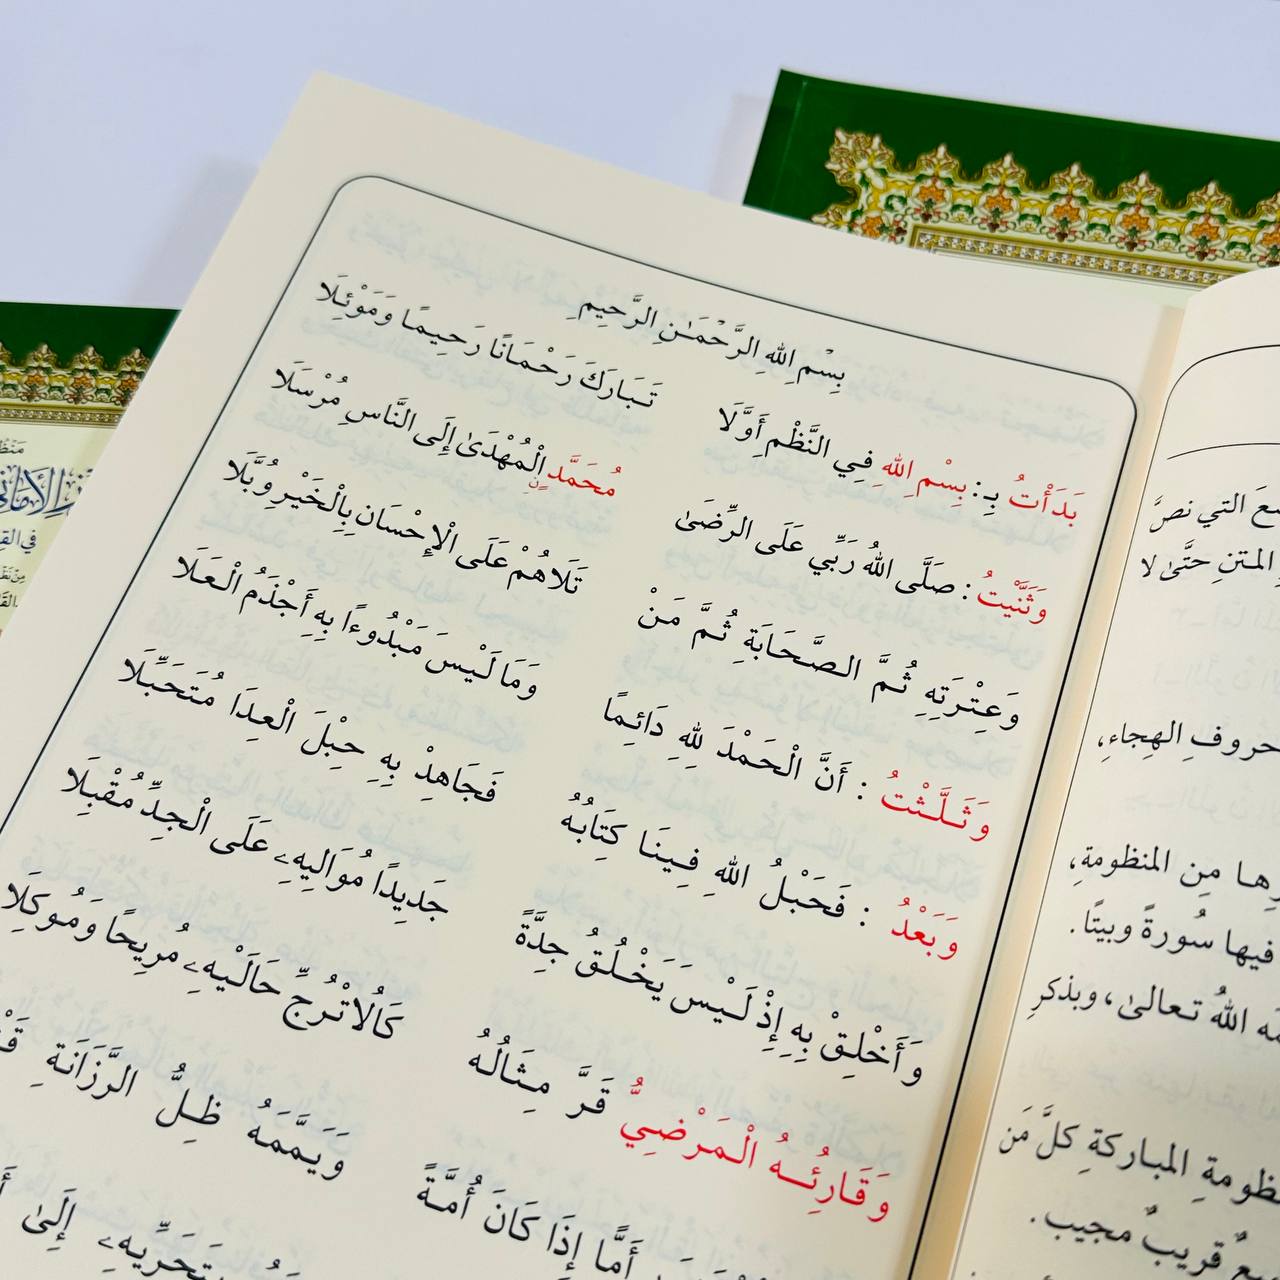 بِسْمِ اللهِ الرَّحْمَـٰنِ الرَّحِيمِ
بَدَأْتُ بِـ: بِسْمِ اللهِ فِي النَّظْمِ أَوَّلَا تَبَارَكَ رَحْمَانًا رَحِيمًا وَمَوْئِلَا
وَثَنَّيْتُ : صَلَّى اللهُ رَبِّي عَلَى الرِّضَىٰ مُحَمَّدٍنِ الْمُهْدَىٰ إِلَى النَّاسِ مُرْسَلَا
وَعِتْرَتِهِ ثُمَّ الصَّحَابَةِ ثُمَّ مَنْ تَلَاهُمْ عَلَى الْإِحْسَانِ بِالْخَيْرِ وُبَّلَا
وَثَلَّثْتُ : أَنَّ الْحَمْدَ لِلهِ دَائِمًا وَمَا لَيْسَ مَبْدُوءًا بِهِ أَجْذَمُ الْعَلَا
وَبَعْدُ : فَحَبْلُ اللهِ فِينَا كِتَابُهُ فَجَاهِدْ بِهِ حِبْلَ الْعِدَا مُتَحَبِّلَا
وَأَخْلِقْ بِهِ إِذْ لَيْسَ يَخْلُقُ جِدَّةً جَدِيدًا مُوَالِيهِۦ عَلَى الْجِدِّ مُقْبِلَا
وَقَارِئُهُ الْمَرْضِيُّ قَرَّ مِثَالُهُ كَالُاتْرُجِّ حَالَيْهِۦ مُرِيحًا وَمُوكَلَا
أَمَّا إِذَا كَانَ أُمَّةً وَيَمَّمَهُ ظِلُّ الرَّزَانَةِ
إِلَىٰ
التي نصَّ
المتنِ حتَّىٰ لا
حروفِ الهِجاءِ،
مِن المنظومةِ،
فيها سُورةً وبيتًا.
اللهُ تعالىٰ، وبذكرِ
المباركةِ كلَّ مَن
قريبٌ مجيب.